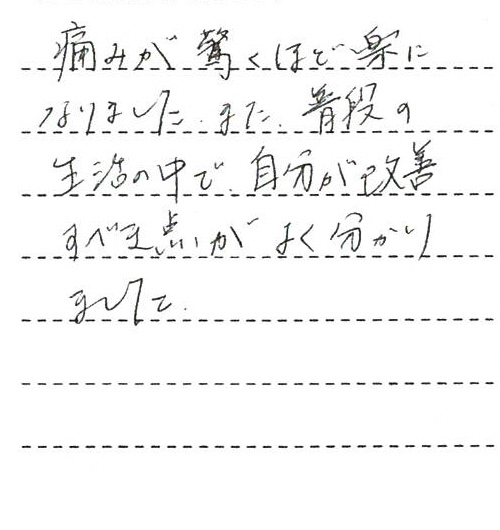 痛みが驚くほど楽に
なりました。また、普段の
生活の中で、自分が改善
すべき点がよく分かり
ました。